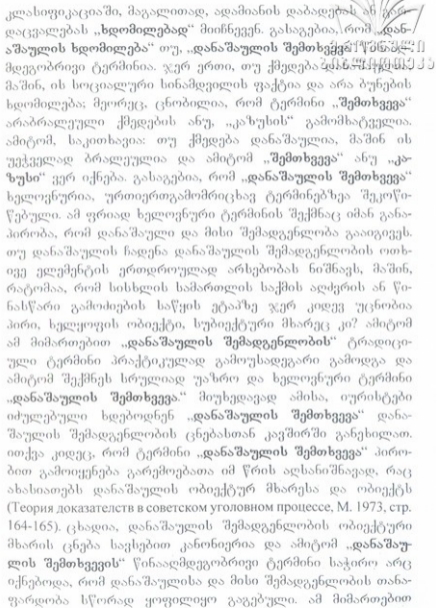 კლასიფიკაციაში, მაგალითად, ადამიანის დაბადებას ან გარ-
დაცვალებას „ხდომილებად“ მიიჩნევენ. გასაგებია, რომ „დან-
აშაულის ხდომილება“ თუ, „დანაშაულის შემთხვევა“
მდგობრივი ტერმინია. ჯერ ერთი, თუ ქმედება
მაშინ, ის სოციალური სინამდვილის ფაქტია და არა ბუნების
ხდომილება; მეორეც, ცნობილია, რომ ტერმინი „შემთხვევა“
არაბრალეული ქმედების ანუ, „კაზუსის“ გამომხატველია.
ამიტომ, საკითხავია: თუ ქმედება დანაშაულია, მაშინ ის
უეჭველად ბრალეულია და ამიტომ „შემთხვევა“ ანუ „კა-
ზუსი“ ვერ იქნება. გასაგებია, რომ „დანაშაულის შემთხვევა“
ხელოვნურია, ურთიერთგამომრიცხავ ტერმინებზეა შეკოწი-
წებული. ამ ფრიად ხელოვნური ტერმინის შექმნაც იმან განა-
პირობა, რომ დანაშაული და მისი შემადგენლობა გააიგივეს.
თუ დანაშაულის ჩადენა დანაშაულის შემადგენლობის ოთხ-
ივე ელემენტის ერთდროულად არსებობას ნიშნავს, მაშინ,
რატომაა, რომ სისხლის სამართლის საქმის აღძვრის ან წი-
ნასწარი გამოძიების საწყის ეტაპზე ჯერ კიდევ უცნობია
პირი, ხელყოფის ობიექტი, სუბიექტური მხარეც კი? ამიტომ
ამ მიმართებით „დანაშაულის შემადგენლობის“ ტრადიცი-
ული ტერმინი პრაქტიკულად გამოუსადეგარი გამოდგა და
ამიტომ შექმნეს სრულიად უაზრო და ხელოვნური ტერმინი
„დანაშაულის შემთხვევა.“ მიუხედავად ამისა, იურისტები
იძულებული ხდებოდნენ „დანაშაულის შემთხვევა“ დანა-
შაულის შემადგენლობის ცნებასთან კავშირში განეხილათ.
ითქვა კიდეც, რომ ტერმინი „დანაშაულის შემთხვევა“ პირო-
ბით გამოიყენება გარემოებათა იმ წრის აღსანიშნავად, რაც
ახასიათებს დანაშაულის ობიექტურ მხარესა და ობიექტს
(Теория доказателств в советском уголовном процессе, М. 1973, стр.
164-165). ცხადია, დანაშაულის შემადგენლობის ობიექტური
მხარის ცნება სავსებით კანონიერია და ამიტომ „დანაშაუ-
ლის შემთხვევის“ წინააღმდეგობრივი ტერმინი საჭირო არც
იქნებოდა, რომ დანაშაულისა და მისი შემადგენლობის თანა-
ფარდობა სწორად ყოფილიყო გაგებული. ამ მიმართებით